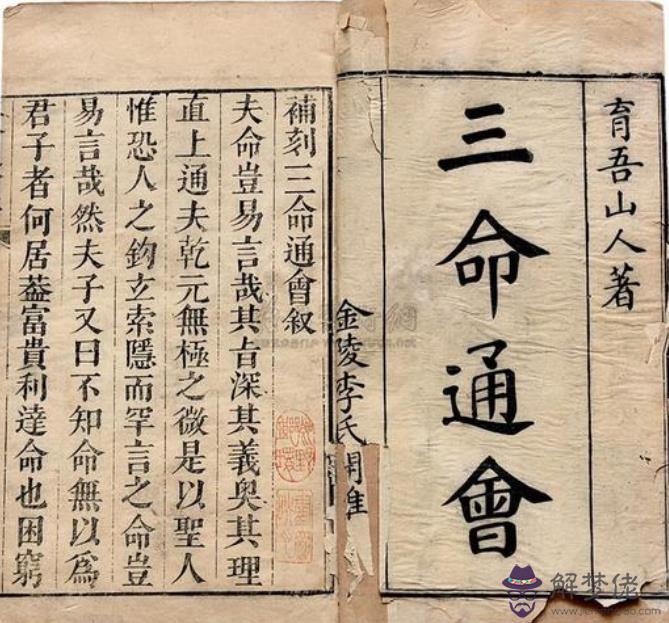 育吾山人著
三命通會
金陵李氏
補刻三命通會叙
夫命豈易言哉其㫖深其義奥其理
直上通夫乾元無極之微是以聖人
惟恐人之鈎玄索隱而罕言之命豈
易言哉然夫子又曰不知命無以爲
君子者何居葢富貴利達命也困窮
解梦佬